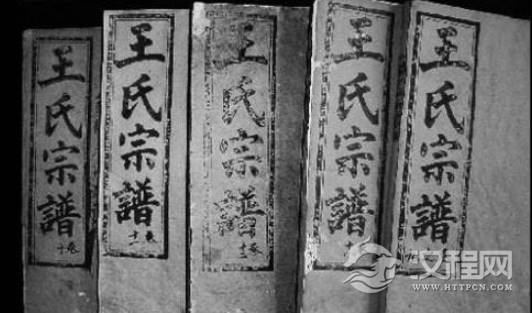 王氏宗譜
卷十
王氏宗譜
卷十一
王氏宗譜
王氏宗譜
王氏宗譜
汉程网
WWW.HTTPCN.COM